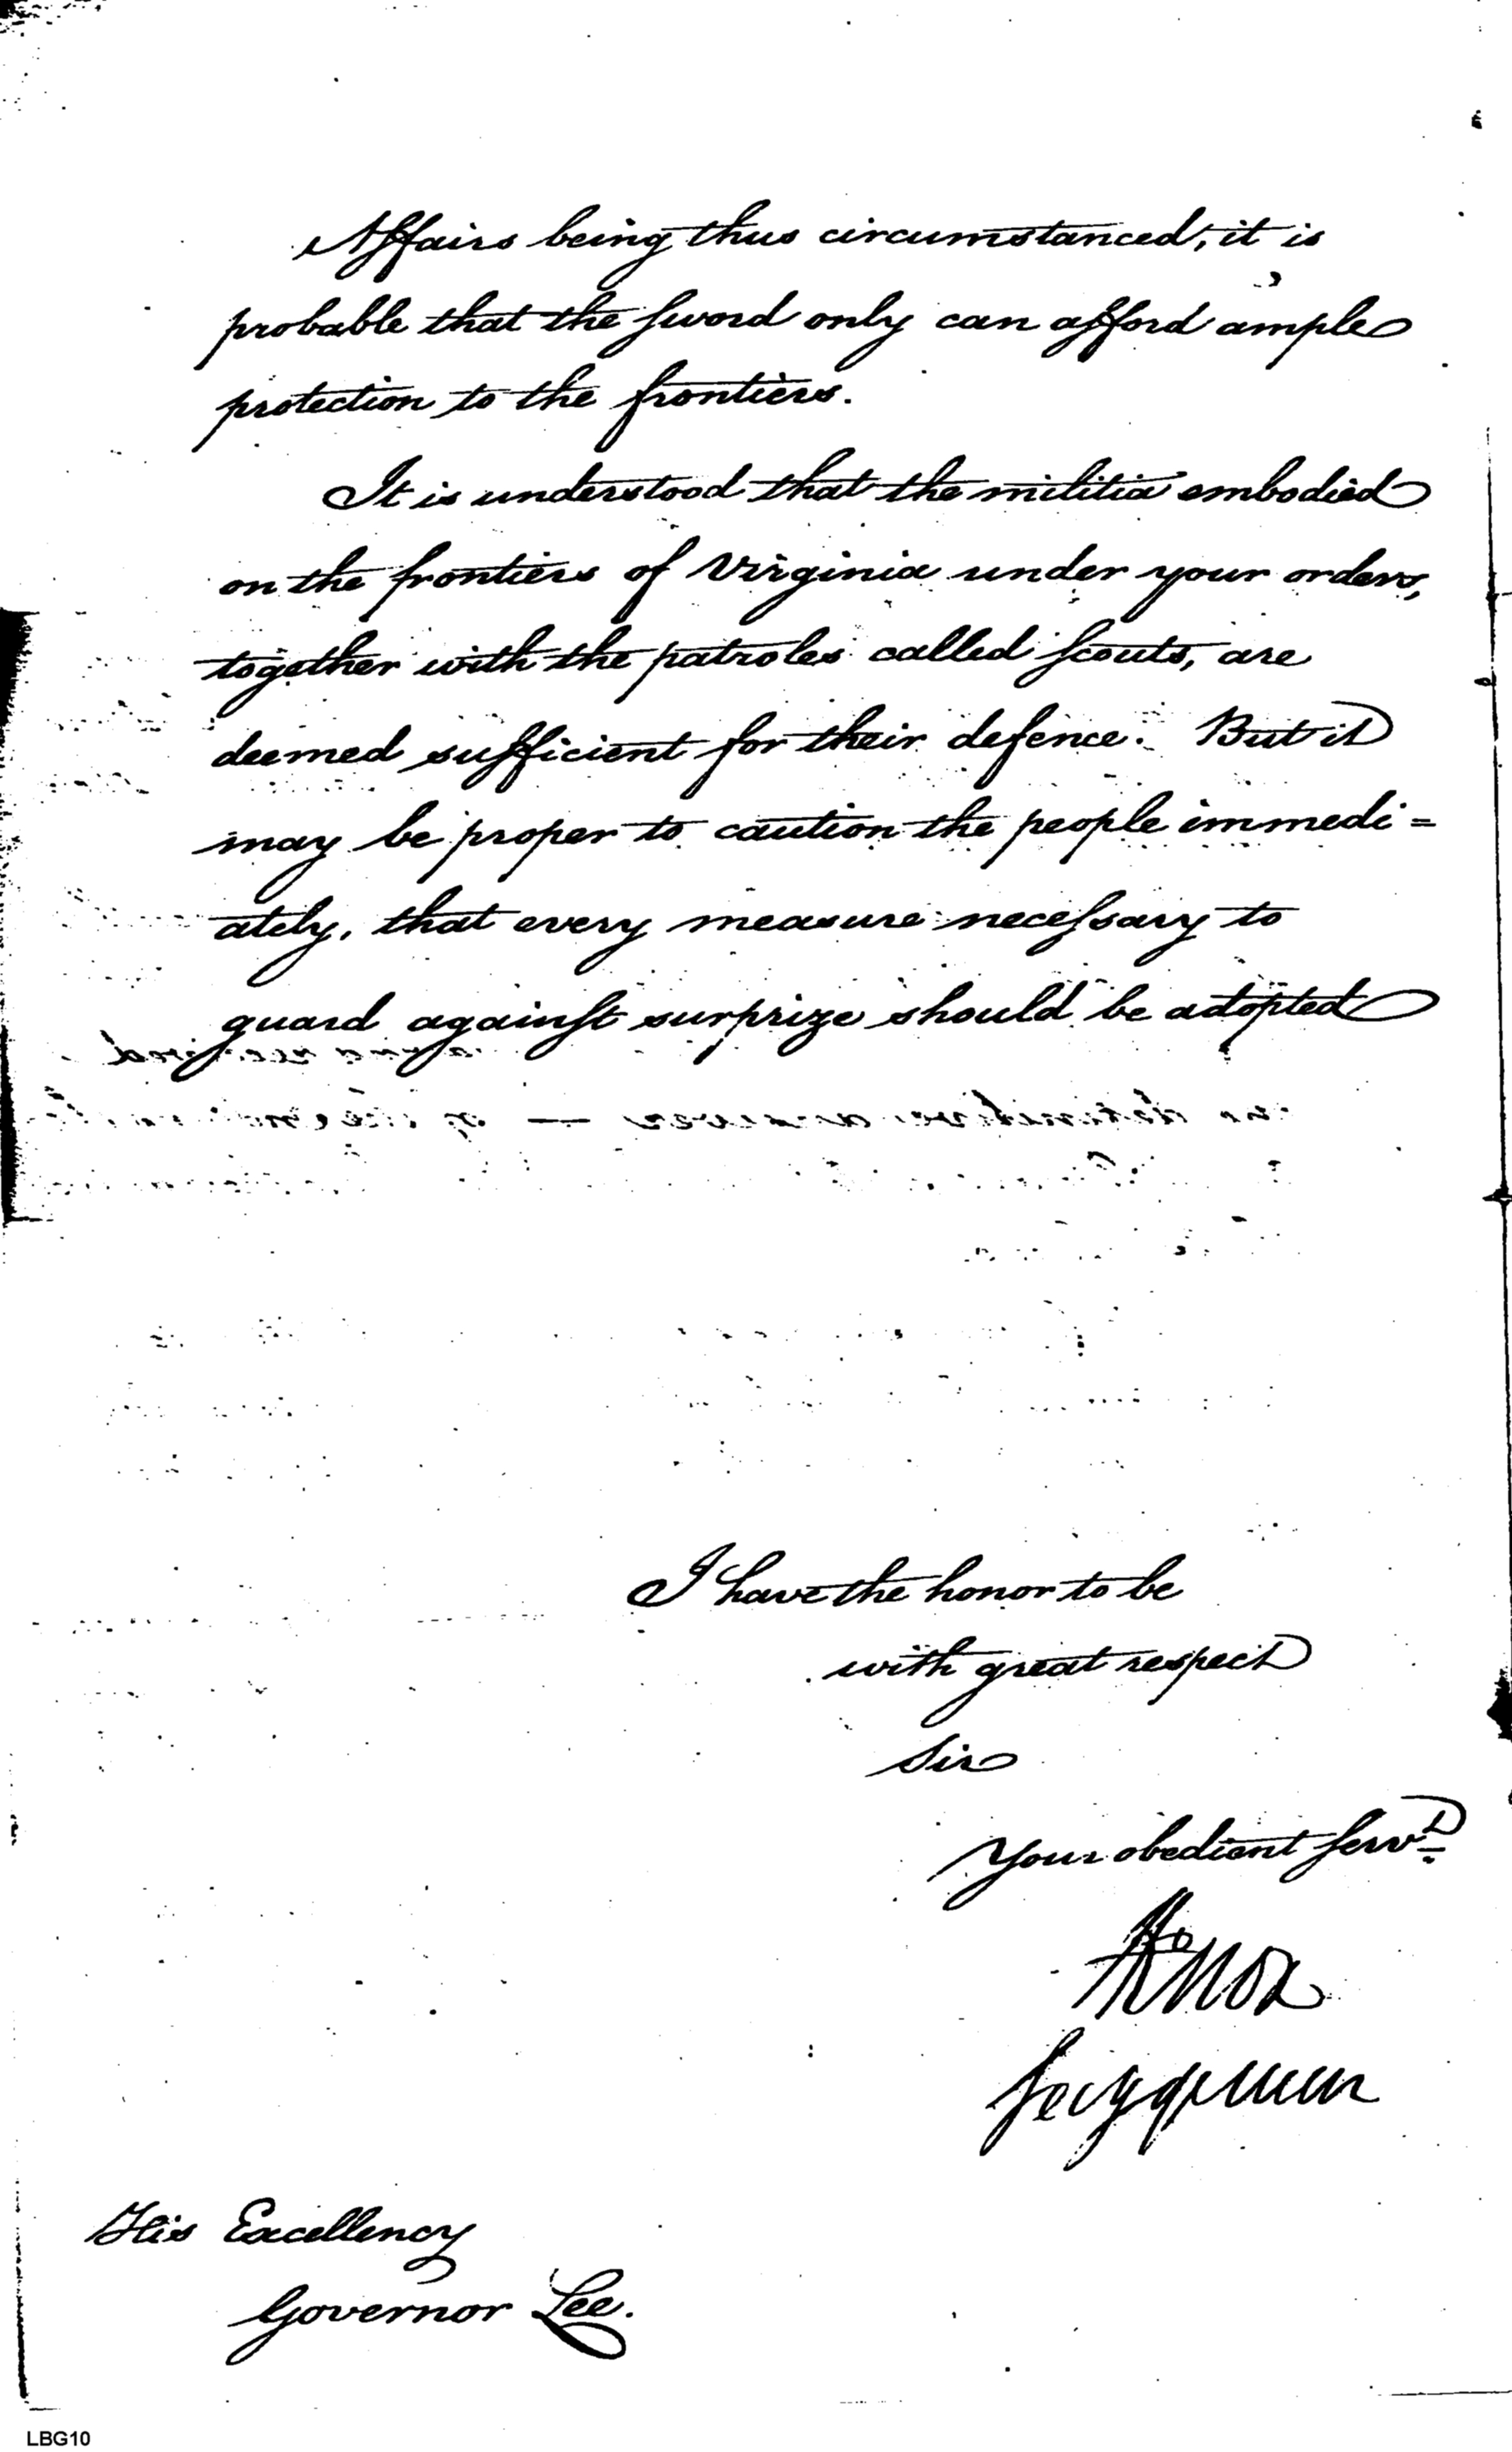 Affairs being thus circumstanced, it is
probable that the sword only can afford ample
protection to the frontiers.
It is understood that the militia embodied
on the frontiers of Virginia under your orders,
together with the patroles called scouts, are
deemed sufficient for their defence. But it
may be proper to caution the people immedi=
ately, that every measure necessary to
guard against surprize should be adopted
I have the honor to be
with great respect
Sir
Your obedient servt
HKnox
Secy of War
His Excellency
Governor Lee.
LBG10